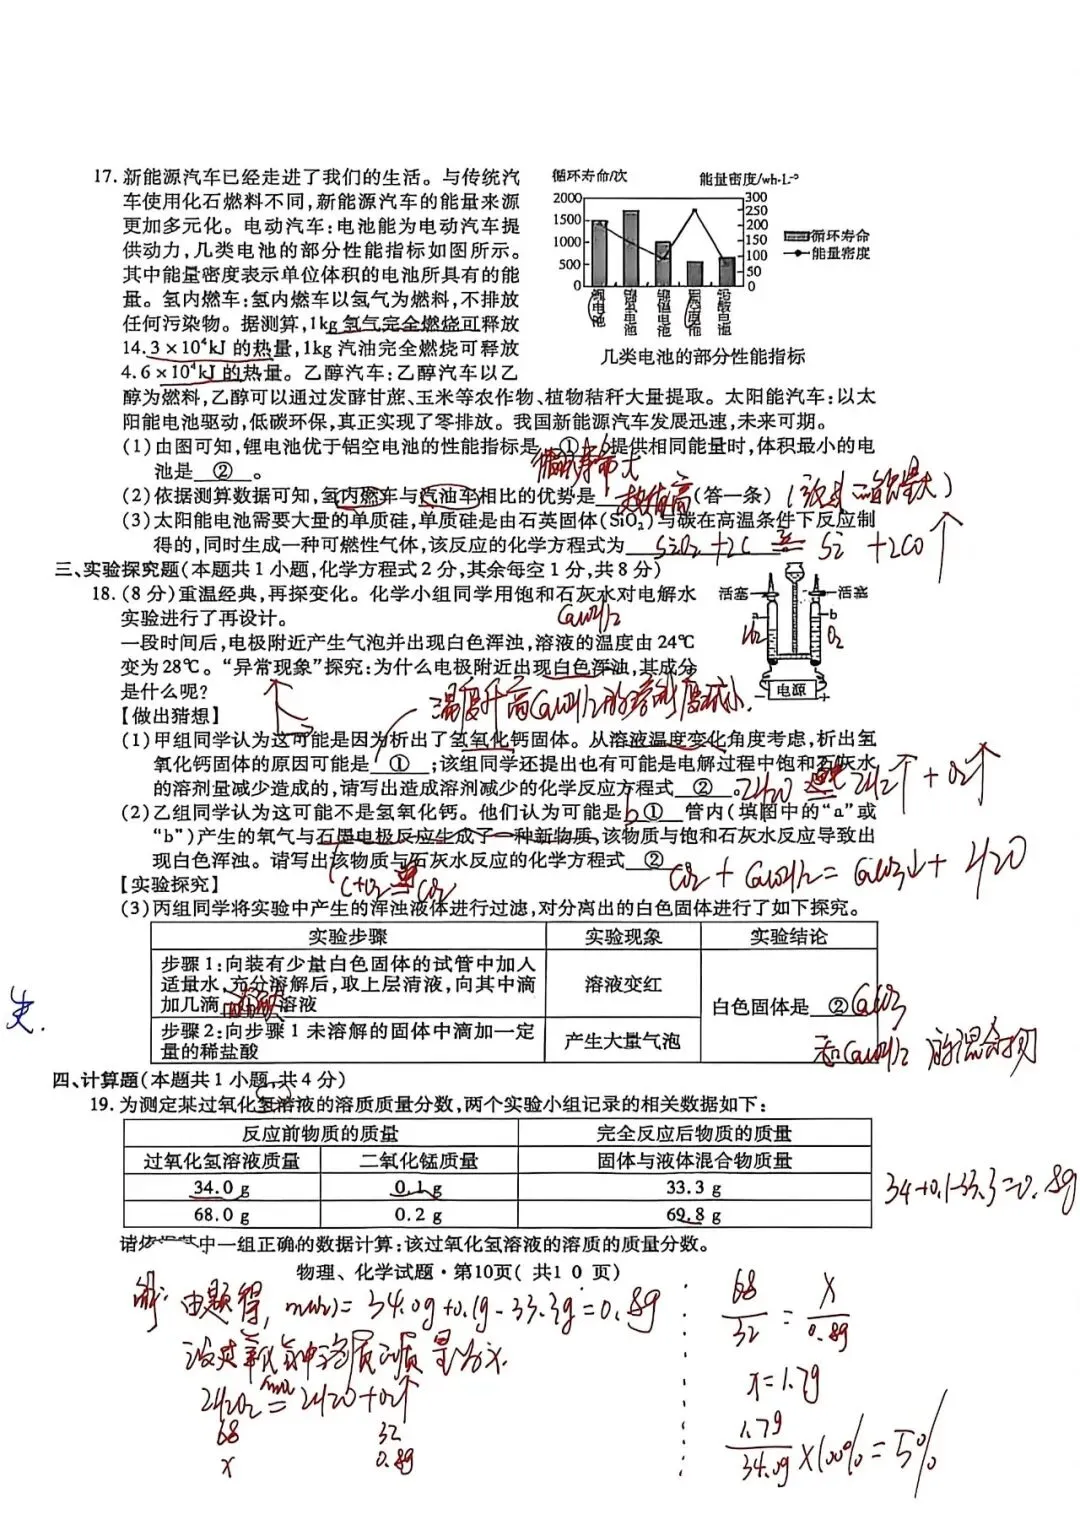 17. 新能源汽车已经走进了我们的生活。与传统汽
车使用化石燃料不同,新能源汽车的能量来源
更加多元化。电动汽车:电池能为电动汽车提
供动力,几类电池的部分性能指标如图所示。
其中能量密度表示单位体积的电池所具有的能
量。氢内燃车:氢内燃车以氢气为燃料,不排放
任何污染物。据测算,1kg 氢气完全燃烧可释放
14.3×10⁴kJ 的热量,1kg 汽油完全燃烧可释放
4.6×10⁴kJ 的热量。乙醇汽车:乙醇汽车以乙
循环寿命/次 能量密度/wh·L⁻⁰
2000 300
1500 250
1000 200
500 150
0 100
50
0
循环寿命
能量密度
锂电池
几类电池的部分性能指标
醇为燃料,乙醇可以通过发酵甘蔗、玉米等农作物、植物秸秆大量提取。太阳能汽车:以太
阳能电池驱动,低碳环保,真正实现了零排放。我国新能源汽车发展迅速,未来可期。
(1)由图可知,锂电池优于铝空电池的性能指标是 ① ;提供相同能量时,体积最小的电
循环寿命大
池是 ② 。
(2)依据测算数据可知,氢内燃车与汽油车相比的优势是 热值高 (答一条)
(3)太阳能电池需要大量的单质硅,单质硅是由石英固体(SiO₂)与碳在高温条件下反应制
得的,同时生成一种可燃性气体,该反应的化学方程式为 SiO₂+2C = Si +2CO↑
三、实验探究题(本题共 1 小题,化学方程式 2 分,其余每空 1 分,共 8 分)
18. (8 分)重温经典,再探变化。化学小组同学用饱和石灰水对电解水
实验进行了再设计。 Ca(OH)₂
一段时间后,电极附近产生气泡并出现白色浑浊,溶液的温度由 24℃
变为 28℃。“异常现象”探究:为什么电极附近出现白色浑浊,其成分
是什么呢?
活塞 活塞
a b
H₂ O₂
电源
温度升高Ca(OH)₂的溶解度减小.
【做出猜想】
(1)甲组同学认为这可能是因为析出了氢氧化钙固体。从溶液温度变化角度考虑,析出氢
氧化钙固体的原因可能是 ① ;该组同学还提出也有可能是电解过程中饱和石灰水
的溶剂量减少造成的,请写出造成溶剂减少的化学反应方程式 ② 。 2H₂O 通电 2H₂↑+O₂↑
(2)乙组同学认为这可能不是氢氧化钙。他们认为可能是 b ① 管内(填图中的“a”或
“b”)产生的氧气与石墨电极反应生成了一种新物质,该物质与饱和石灰水反应导致出
现白色浑浊。请写出该物质与石灰水反应的化学方程式 ② CO₂+Ca(OH)₂=CaCO₃↓+H₂O
C+O₂ 点燃 CO₂
【实验探究】
(3)丙组同学将实验中产生的浑浊液体进行过滤,对分离出的白色固体进行了如下探究。
实验步骤 实验现象 实验结论
步骤 1:向装有少量白色固体的试管中加入
适量水,充分溶解后,取上层清液,向其中滴
加几滴 溶液
溶液变红
步骤 2:向步骤 1 未溶解的固体中滴加一定
量的稀盐酸
产生大量气泡
白色固体是 ② CaCO₃
和Ca(OH)₂的混合物
四、计算题(本题共 1 小题,共 4 分)
19. 为测定某过氧化氢溶液的溶质质量分数,两个实验小组记录的相关数据如下:
反应前物质的质量 完全反应后物质的质量
过氧化氢溶液质量 二氧化锰质量 固体与液体混合物质量
34.0 g 0.1 g 33.3 g
68.0 g 0.2 g 69.8 g
34+0.1-33.3=0.8g
请依据其中一组正确的数据计算:该过氧化氢溶液的溶质的质量分数。
物理、化学试题·第10页( 共1 0 页)
解: 由题得, m(O₂)=34.0g+0.1g-33.3g=0.8g
设过氧化氢中溶质的质量为x.
2H₂O₂ = 2H₂O+O₂↑
68 32
x 0.8g
68/32 = x/0.8g
x=1.7g
1.7g/34.0g ×100%=5%